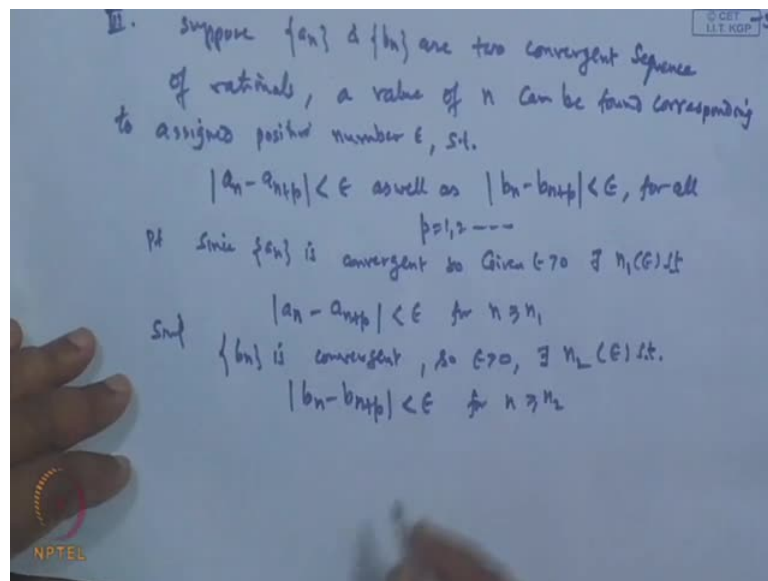 III. Suppose {an} & {bn} are two convergent Sequence
of rationals, a value of n can be found corresponding
to assigned positive number ε, s.t.
|an - an+p| < ε as well as |bn - bn+p| < ε, for all
p=1,2 ----
Pf Since {an} is convergent so Given ε>0 ∃ n1(ε) s.t
|an - an+p| < ε for n ≥ n1
{bn} is convergent, so ε>0, ∃ n2(ε) s.t.
|bn - bn+p| < ε for n ≥ n2
© CET
I.I.T. KGP
NPTEL